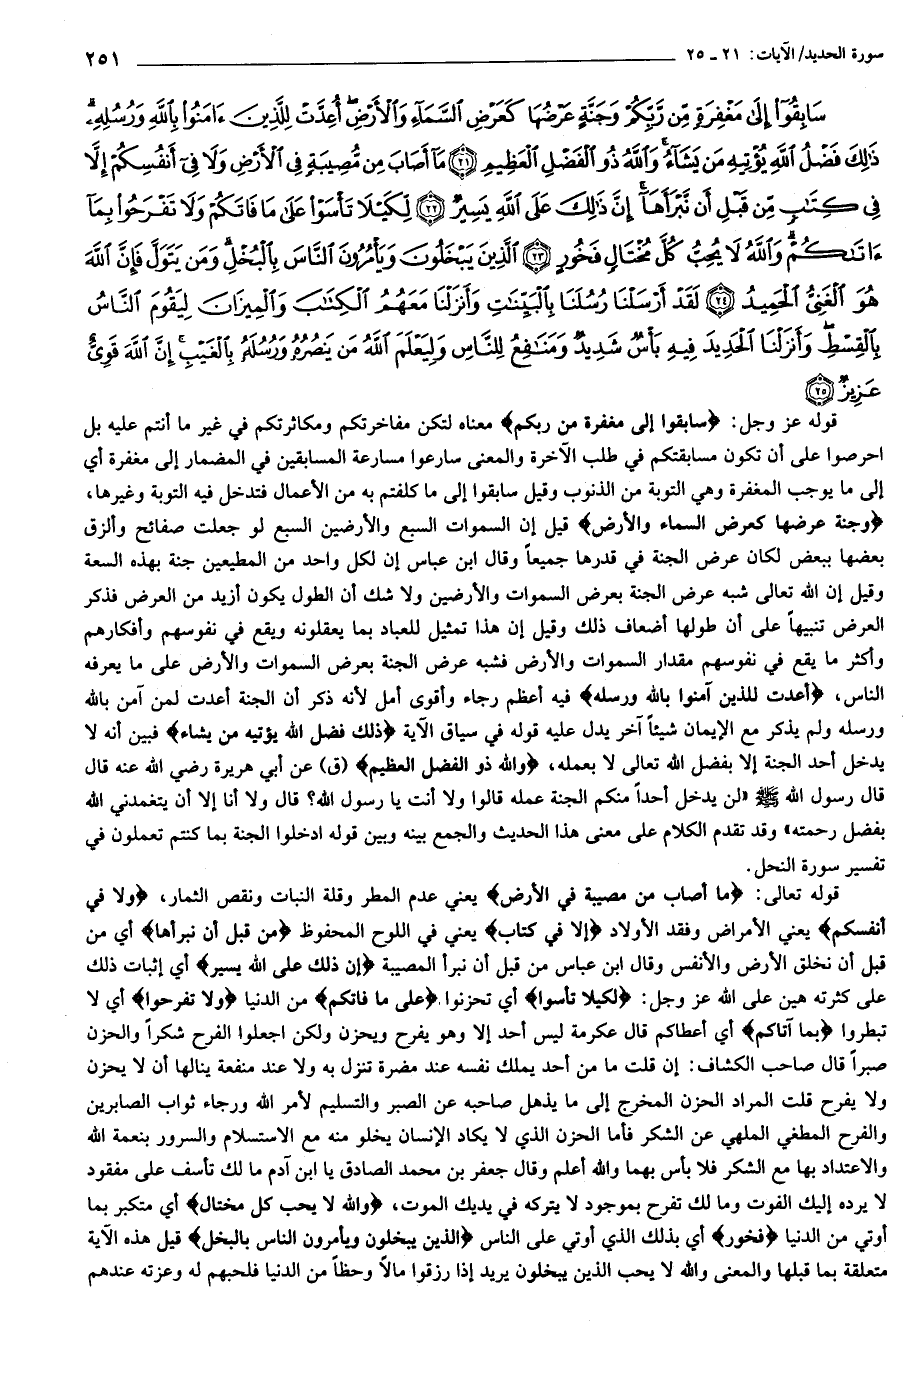 سورة الحديد/ الآيات: ٢١ ـ ٢٥ ٢٥١
سَابِقُوٓا۟ إِلَىٰ مَغْفِرَةٍ مِّن رَّبِّكُمْ وَجَنَّةٍ عَرْضُهَا كَعَرْضِ السَّمَآءِ وَالْأَرْضِ أُعِدَّتْ لِلَّذِينَ ءَامَنُوا۟ بِاللَّهِ وَرُسُلِهِۦۚ
ذَٰلِكَ فَضْلُ اللَّهِ يُؤْتِيهِ مَن يَشَآءُۚ وَاللَّهُ ذُو الْفَضْلِ الْعَظِيمِ ﴿٢١﴾ مَآ أَصَابَ مِن مُّصِيبَةٍ فِى الْأَرْضِ وَلَا فِىٓ أَنفُسِكُمْ إِلَّا
فِى كِتَٰبٍ مِّن قَبْلِ أَن نَّبْرَأَهَآۚ إِنَّ ذَٰلِكَ عَلَى اللَّهِ يَسِيرٌ ﴿٢٢﴾ لِّكَيْلَا تَأْسَوْا۟ عَلَىٰ مَا فَاتَكُمْ وَلَا تَفْرَحُوا۟ بِمَآ
ءَاتَىٰكُمْۗ وَاللَّهُ لَا يُحِبُّ كُلَّ مُخْتَالٍ فَخُورٍ ﴿٢٣﴾ الَّذِينَ يَبْخَلُونَ وَيَأْمُرُونَ النَّاسَ بِالْبُخْلِۗ وَمَن يَتَوَلَّ فَإِنَّ اللَّهَ
هُوَ الْغَنِىُّ الْحَمِيدُ ﴿٢٤﴾ لَقَدْ أَرْسَلْنَا رُسُلَنَا بِالْبَيِّنَٰتِ وَأَنزَلْنَا مَعَهُمُ الْكِتَٰبَ وَالْمِيزَانَ لِيَقُومَ النَّاسُ
بِالْقِسْطِۖ وَأَنزَلْنَا الْحَدِيدَ فِيهِ بَأْسٌ شَدِيدٌ وَمَنَٰفِعُ لِلنَّاسِ وَلِيَعْلَمَ اللَّهُ مَن يَنصُرُهُۥ وَرُسُلَهُۥ بِالْغَيْبِۚ إِنَّ اللَّهَ قَوِىٌّ
عَزِيزٌ ﴿٢٥﴾
قوله عز وجل: ﴿سابقوا إلى مغفرة من ربكم﴾ معناه لتكن مفاخرتكم ومكاثرتكم في غير ما أنتم عليه بل
احرصوا على أن تكون مسابقتكم في طلب الآخرة والمعنى سارعوا مسارعة المسابقين في المضمار إلى مغفرة أي
إلى ما يوجب المغفرة وهي التوبة من الذنوب وقيل سابقوا إلى ما كلفتم به من الأعمال فتدخل فيه التوبة وغيرها،
﴿وجنة عرضها كعرض السماء والأرض﴾ قيل إن السموات السبع والأرضين السبع لو جعلت صفائح وألزق
بعضها ببعض لكان عرض الجنة في قدرها جميعاً وقال ابن عباس إن لكل واحد من المطيعين جنة بهذه السعة
وقيل إن الله تعالى شبه عرض الجنة بعرض السموات والأرضين ولا شك أن الطول يكون أزيد من العرض فذكر
العرض تنبيهاً على أن طولها أضعاف ذلك وقيل إن هذا تمثيل للعباد بما يعقلونه ويقع في نفوسهم وأفكارهم
وأكثر ما يقع في نفوسهم مقدار السموات والأرض فشبه عرض الجنة بعرض السموات والأرض على ما يعرفه
الناس، ﴿أعدت للذين آمنوا بالله ورسله﴾ فيه أعظم رجاء وأقوى أمل لأنه ذكر أن الجنة أعدت لمن آمن بالله
ورسله ولم يذكر مع الإيمان شيئاً آخر يدل عليه قوله في سياق الآية ﴿ذلك فضل الله يؤتيه من يشاء﴾ فبين أنه لا
يدخل أحد الجنة إلا بفضل الله تعالى لا بعمله، ﴿والله ذو الفضل العظيم﴾ (ق) عن أبي هريرة رضي الله عنه قال
قال رسول الله ﷺ «لن يدخل أحداً منكم الجنة عمله قالوا ولا أنت يا رسول الله؟ قال ولا أنا إلا أن يتغمدني الله
بفضل رحمته» وقد تقدم الكلام على معنى هذا الحديث والجمع بينه وبين قوله ادخلوا الجنة بما كنتم تعملون في
تفسير سورة النحل.
قوله تعالى: ﴿ما أصاب من مصيبة في الأرض﴾ يعني عدم المطر وقلة النبات ونقص الثمار، ﴿ولا في
أنفسكم﴾ يعني الأمراض وفقد الأولاد ﴿إلا في كتاب﴾ يعني في اللوح المحفوظ ﴿من قبل أن نبرأها﴾ أي من
قبل أن نخلق الأرض والأنفس وقال ابن عباس من قبل أن نبرأ المصيبة ﴿إن ذلك على الله يسير﴾ أي إثبات ذلك
على كثرته هين على الله عز وجل: ﴿لكيلا تأسوا﴾ أي تحزنوا ﴿على ما فاتكم﴾ من الدنيا ﴿ولا تفرحوا﴾ أي لا
تبطروا ﴿بما آتاكم﴾ أي أعطاكم قال عكرمة ليس أحد إلا وهو يفرح ويحزن ولكن اجعلوا الفرح شكراً والحزن
صبراً قال صاحب الكشاف: إن قلت ما من أحد يملك نفسه عند مضرة تنزل به ولا عند منفعة ينالها أن لا يحزن
ولا يفرح قلت المراد الحزن المخرج إلى ما يذهل صاحبه عن الصبر والتسليم لأمر الله ورجاء ثواب الصابرين
والفرح المطغي الملهي عن الشكر فأما الحزن الذي لا يكاد الإنسان يخلو منه مع الاستسلام والسرور بنعمة الله
والاعتداد بها مع الشكر فلا بأس بهما والله أعلم وقال جعفر بن محمد الصادق يا ابن آدم ما لك تأسف على مفقود
لا يرده إليك الفوت وما لك تفرح بموجود لا يتركه في يديك الموت، ﴿والله لا يحب كل مختال﴾ أي متكبر بما
أوتي من الدنيا ﴿فخور﴾ أي بذلك الذي أوتي على الناس ﴿الذين يبخلون ويأمرون الناس بالبخل﴾ قيل هذه الآية
متعلقة بما قبلها والمعنى والله لا يحب الذين يبخلون يريد إذا رزقوا مالاً وحظاً من الدنيا فلحبهم له وعزته عندهم